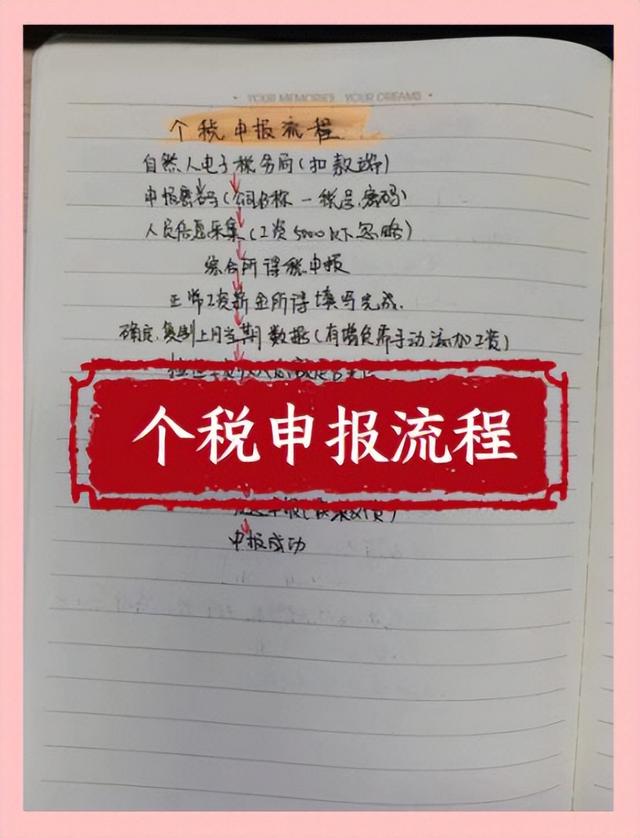 YOUR MEMORIES YOUR DREAMS
个税申报流程
自然人电子税务局(扣款端)
申报密码(公司名称一税号.密码)
人员信息采集(工资5000以下忽略)
综合所得税申报
正常工资薪金所得填写完成.
确定.复制上月当期数据(有增员需手动添加工资)
个税申报流程
申报成功